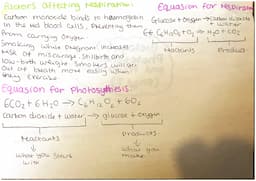 Factors affecting respiration:
Carbon monoxide binds to haemoglobin
in the red blood cells. Preventing them
from carrying oxygen.
Smoking while pregnant increases
risk of miscarriage, stillbirth and
low-birth weight. Smokers will get
out of breath more easily when
they exercise
Equation for Respiration
Glucose + oxygen → carbon dioxide
+ water
C6H12O6 + O2 → H2O + CO2
Reactants
Products
Equation for Photosythesis.
6CO2 + 6H2O → C6H12O6 + 6O2
carbon dioxide + water → glucose + oxygen
reactants
products
what you start
with
what you
make